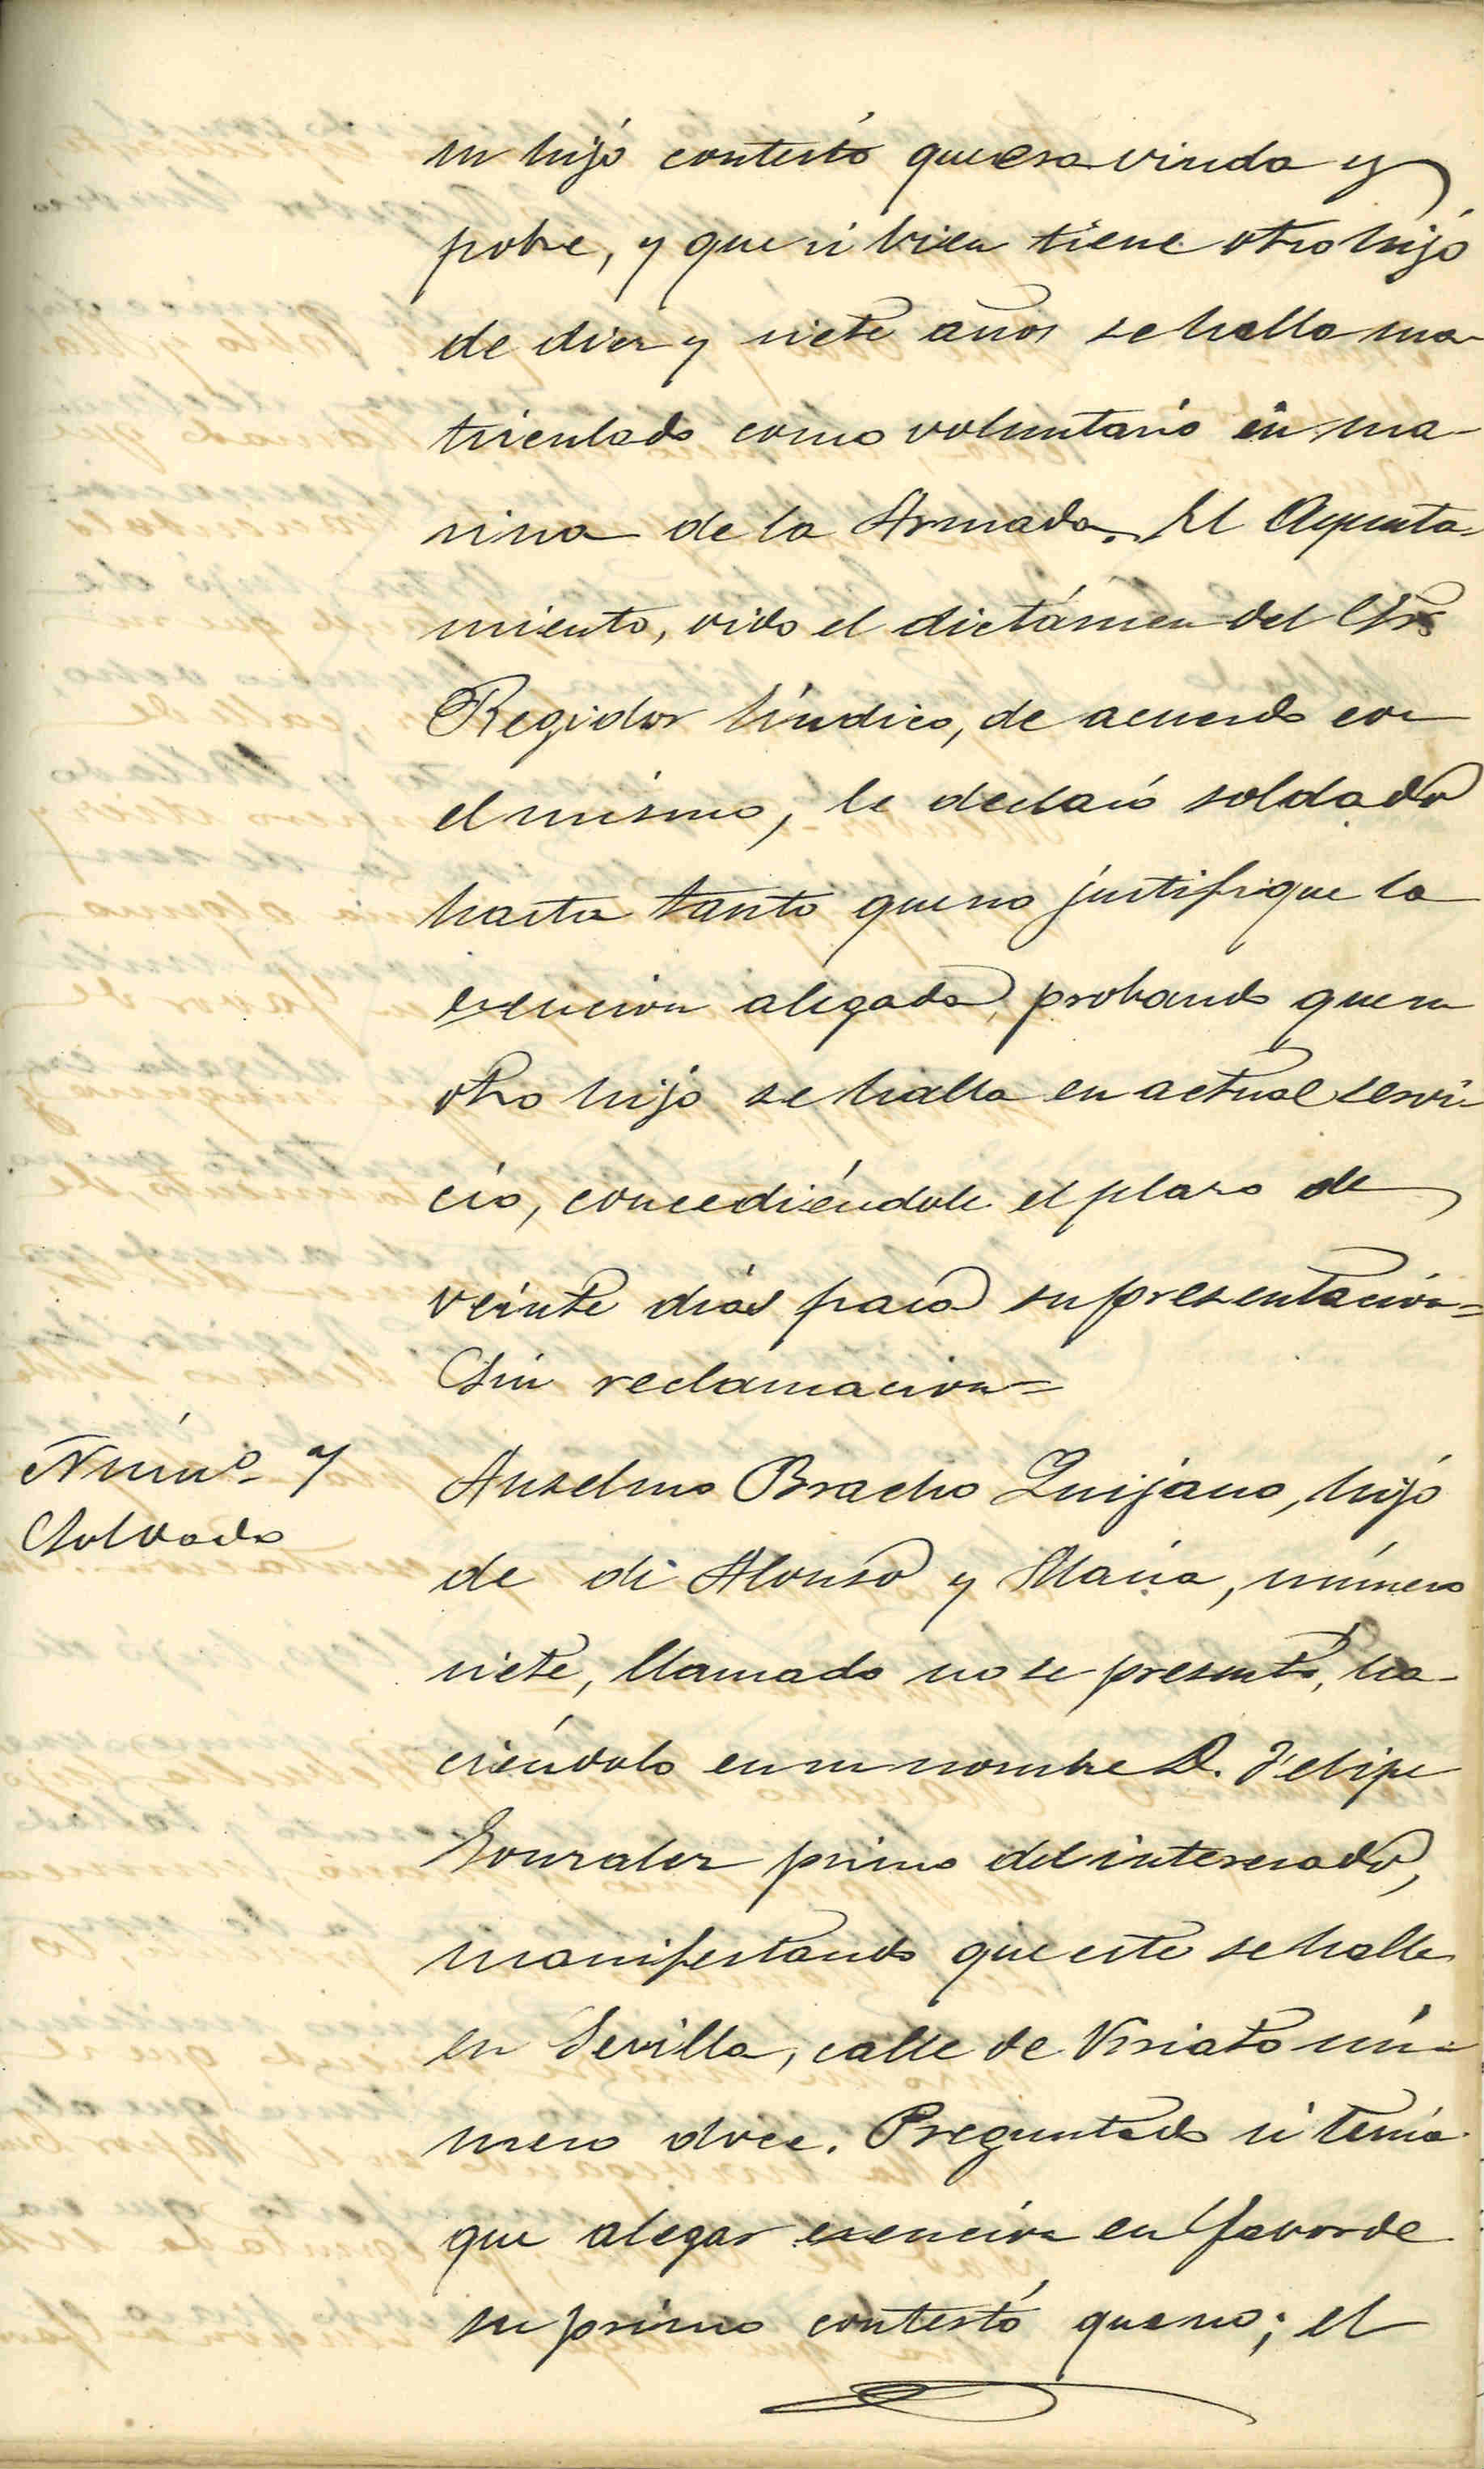 su hijo contestó que era viuda y
pobre, y que si bien tiene otro hijo
de diez y siete años se halla ma-
triculado como voluntario en ma-
rina de la Armada. El Ayunta-
miento, oido el dictámen del Sr.
Regidor Síndico, de acuerdo con
el mismo, le declaró soldado
hasta tanto que no justifique la
exencion alegada, probando que su
otro hijo se halla en actual servi-
cio, concediéndole el plazo de
veinte dias para su presentación=
Sin reclamacion=
Númº 7
Soldado
Anselmo Bracho Quijano, hijo
de di Alonso y Maria, número
siete, llamado no se presentó, ha-
ciéndolo en su nombre D. Felipe
Gonzalez primo del interesado,
manifestando que este se halla
en Sevilla, calle de Viriato nú-
mero doce. Preguntado si tenía
que alegar exencion en favor de
su primo contestó que no; el